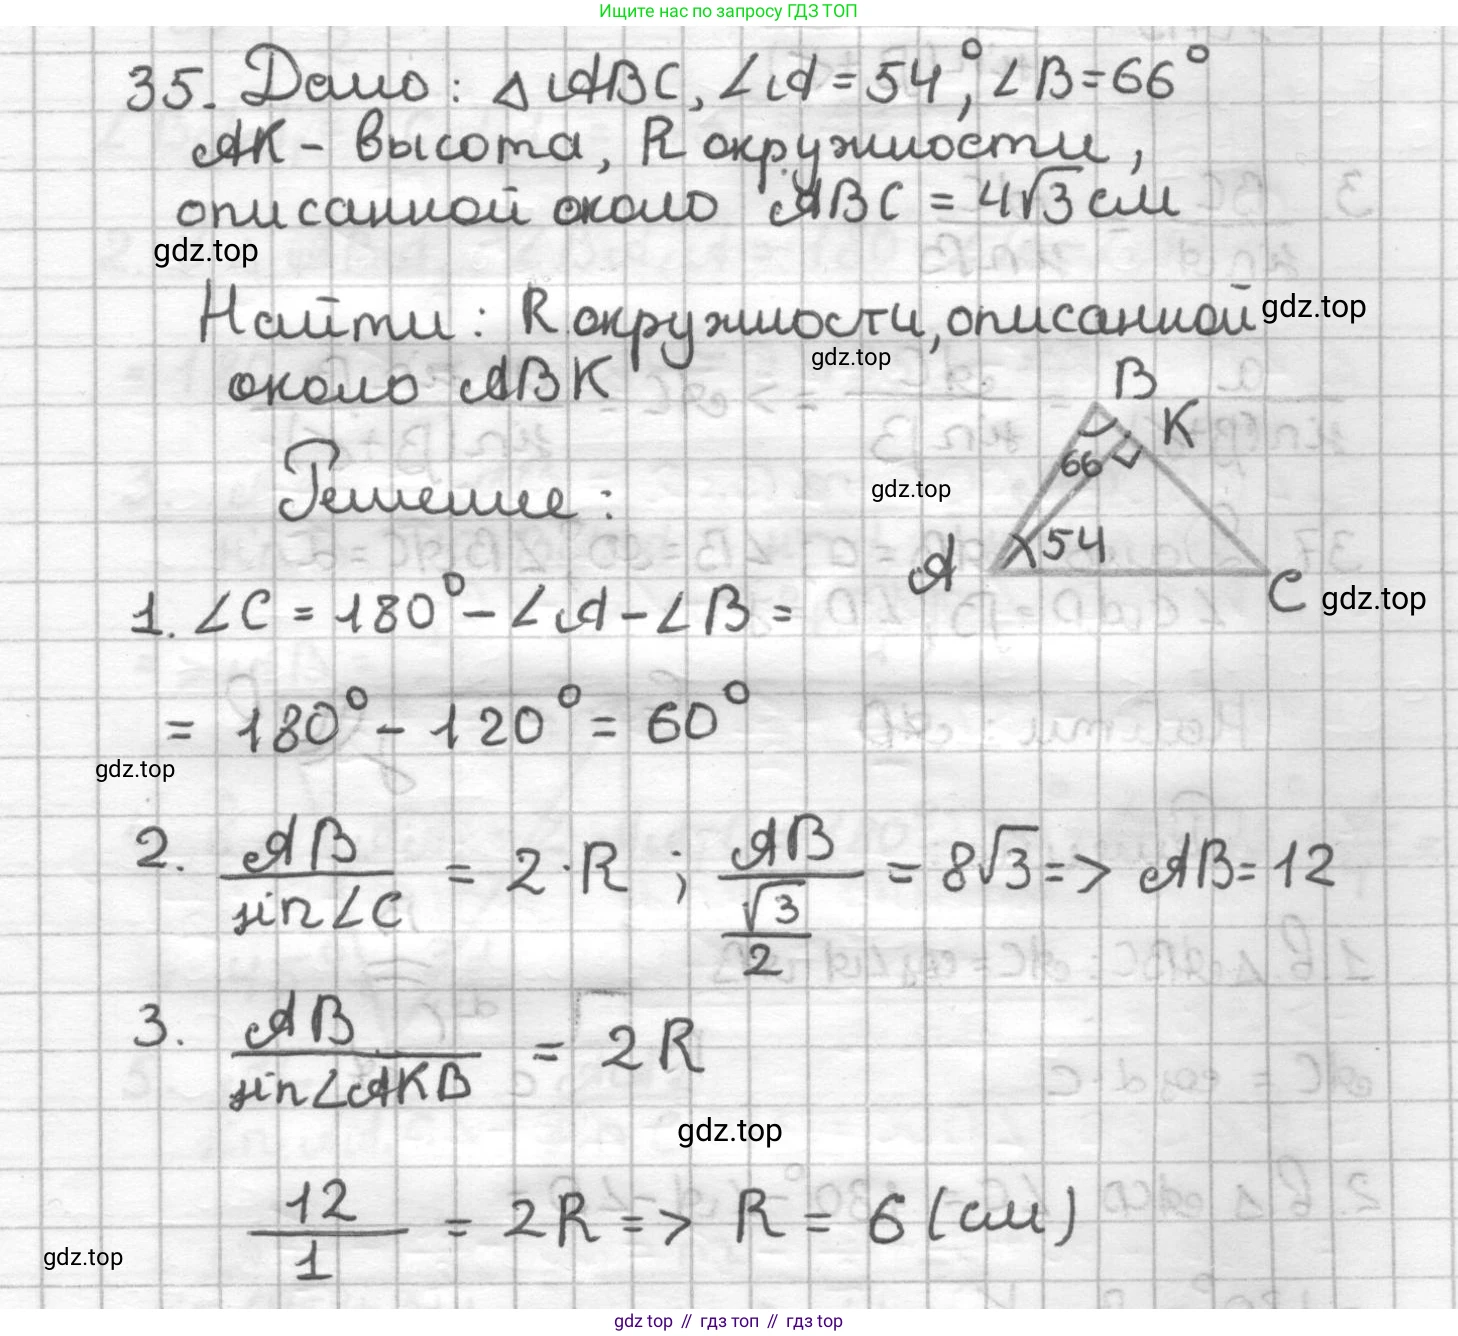 Ищите нас по запросу ГДЗ ТОП
35. Дано: △ABC, ∠A = 54°, ∠B = 66°
AK - высота, R окружности,
описанной около ABC = 4√3 см
gdz.top
Найти: R окружности, описанной
gdz.top
около ABK
gdz.top
B
K
66
Решение:
gdz.top
A
54
C
gdz.top
1. ∠C = 180° - ∠A - ∠B =
= 180° - 120° = 60°
gdz.top
2. AB / sin∠C = 2 · R ; AB / (√3 / 2) = 8√3 => AB = 12
3. AB / sin∠AKB = 2R
gdz.top
12 / 1 = 2R => R = 6 (см)
gdz.top
gdz top // гдз топ // гдз top